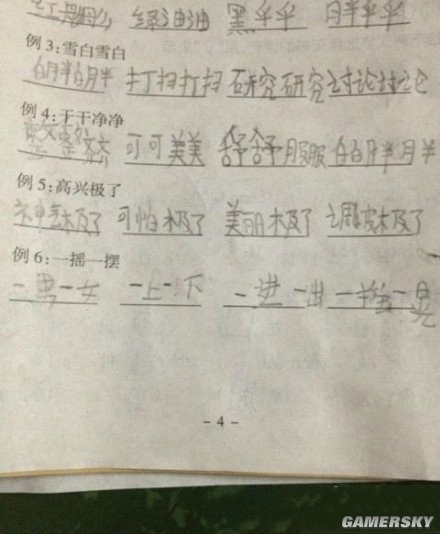 绿油油 黑乎乎
例 3:雪白雪白
白胖白胖 打扫打扫 研究研究 讨论讨论
例 4:干干净净
整整齐齐 可可美美 舒舒服服 白白胖胖
例 5:高兴极了
神奇极了 可怕极了 美丽极了 调皮极了
例 6:一摇一摆
一男一女 一上一下 一进一出 一摇一晃
- 4 -
GAMERSKY